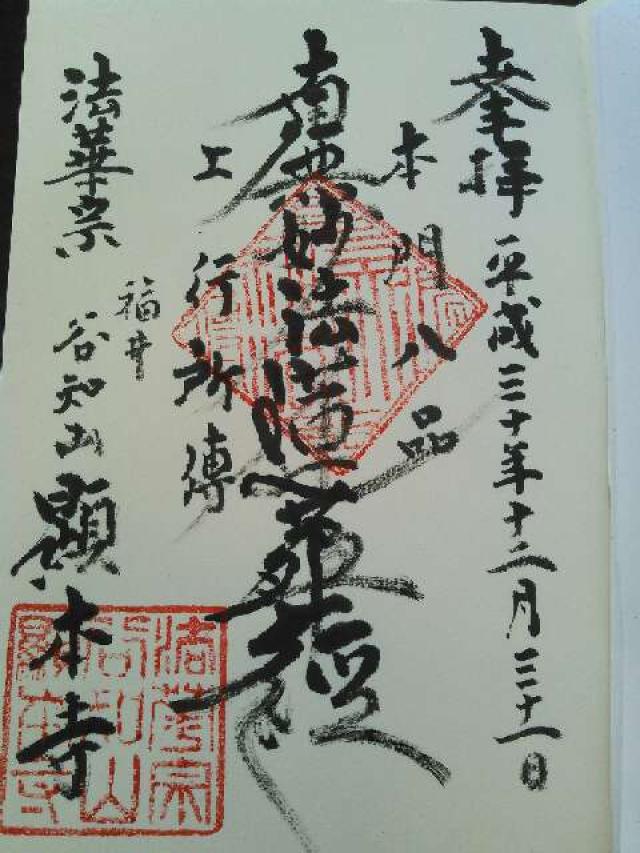 奉拝
平成三十年十二月三十一日
本門八品
南無妙法蓮華経
上行所傳
法華宗
福井
谷知山
顕本寺
法華宗
谷知山
顕本寺